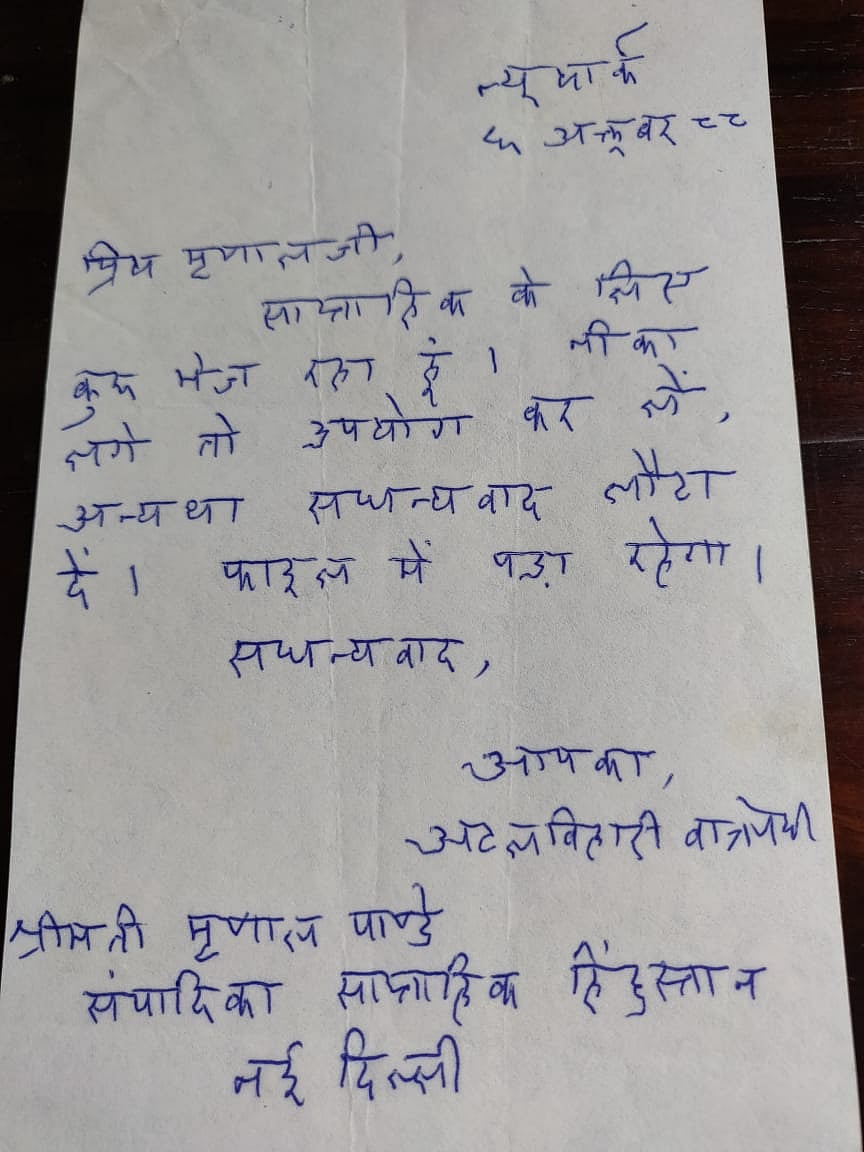 न्यूयार्क
५ अक्तूबर ८८
प्रिय मृणालजी,
साप्ताहिक के लिए
कुछ भेज रहा हूं। नीका
लगे तो उपयोग कर लें,
अन्यथा सधन्यवाद लौटा
दें। फाइल में पड़ा रहेगा।
सधन्यवाद,
आपका,
अटलबिहारी वाजपेयी
श्रीमती मृणाल पाण्डे
संपादिका साप्ताहिक हिंदुस्तान
नई दिल्ली